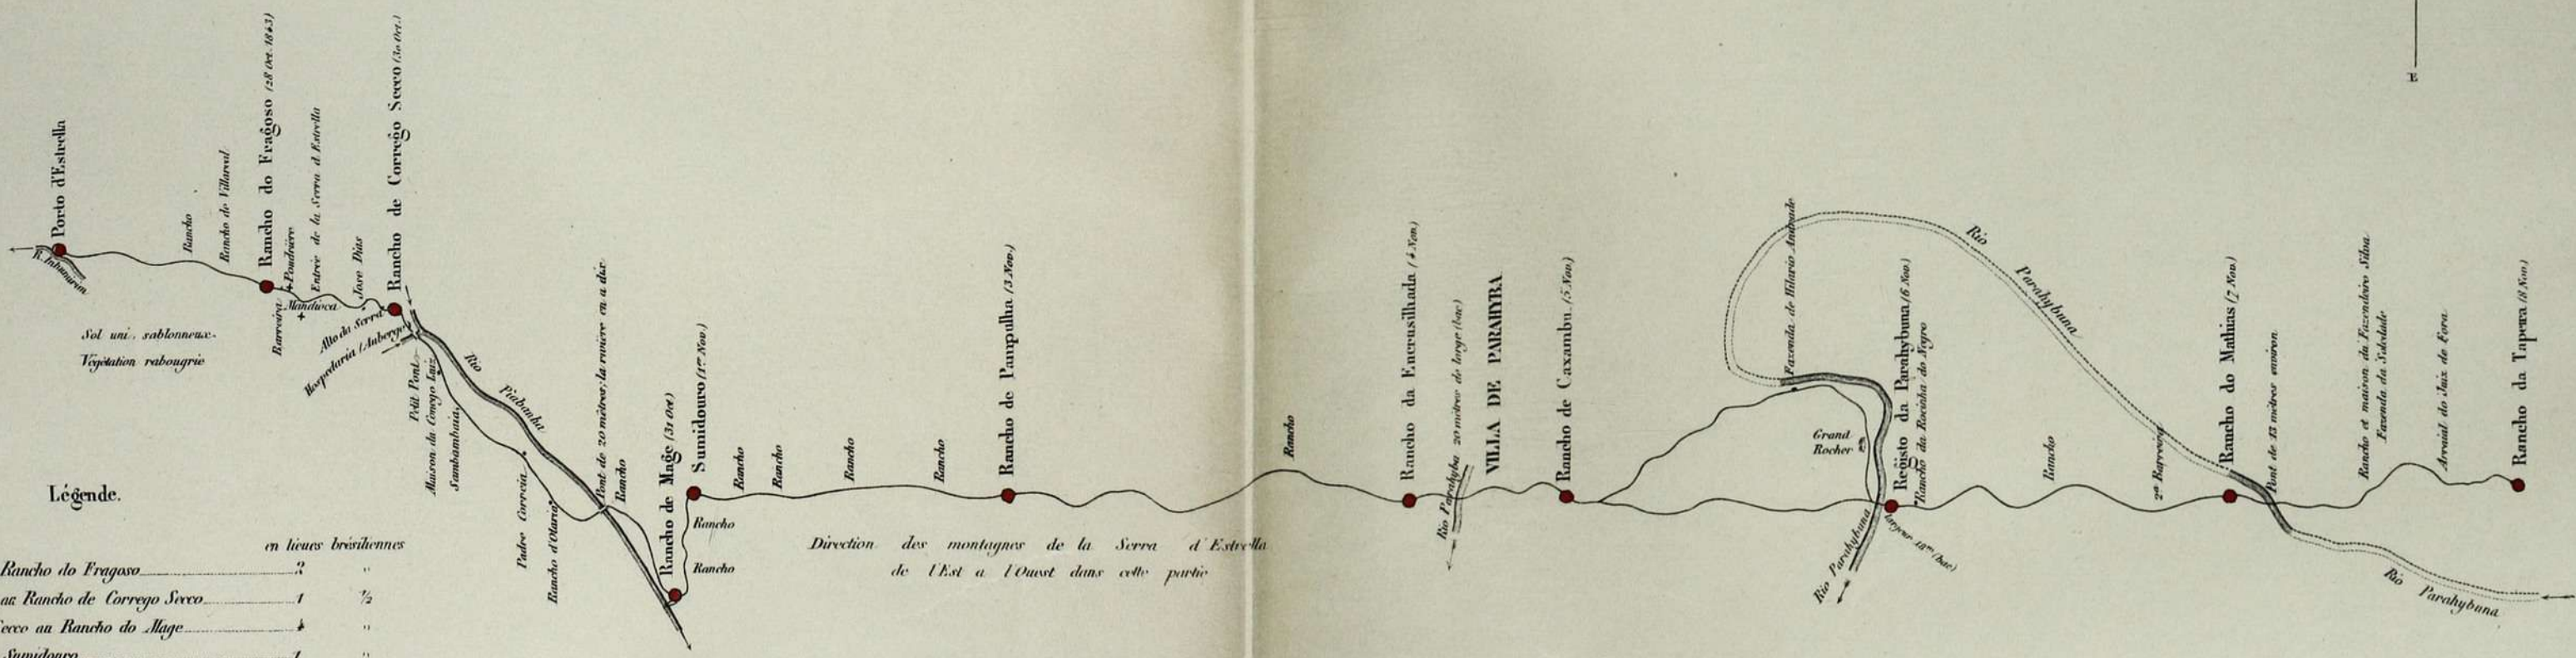 Porto d'Estrella
R. Inhumirim
Rancho
Rancho de Villareal
Rancho do Fragoso (28 Oct. 1843)
Barreira
Poudrière
Mandioca
Entrée de la Serra d'Estrella
Jose Dias
Rancho de Corrego Secco (30 Oct.)
Alto da Serra
Hospedaria (Auberge)
Sol uni, sablonneux.
Végétation rabougrie
Petit Pont
Maison du Conego Luiz
Sambambaia
Rio Piabanha
Padre Correia
Rancho d'Olaria
Pont de 20 mètres; la rivière en a dix
Rancho
Rancho de Magé (31 Oct)
Sumidouro (1er Nov.)
Rancho
Rancho
Rancho
Rancho
Rancho
Rancho
Rancho de Pampulha (3 Nov.)
Direction des montagnes de la Serra d'Estrella
de l'Est a l'Ouest dans cette partie
Rancho
Rancho da Encrusilhada (4 Nov.)
Rio Parahyba 20 mètres de large (bac)
VILLA DE PARAHYBA
Rancho de Caxambu (5 Nov.)
Fazenda de Hilario Andrade
Grand
Rocher
Rio Parahybuna
Registo da Parahybuna (6 Nov.)
Rancho da Rocinha do Negro
(bac)
Rio Parahybuna
Rancho
2a Barreira
Rancho do Mathias (7 Nov.)
Pont de 13 mètres environ
Rancho et maison du Fazendeiro Silva
Fazenda da Soledade
Arraial do Juiz de Fora
Rancho da Tapera (8 Nov.)
Rio Parahybuna
E
Légende.
en lieues brésiliennes
Rancho do Fragoso 2 "
au Rancho de Corrego Secco 1 ½
ecco au Rancho do Mage 4 "
Sumidouro 1 "